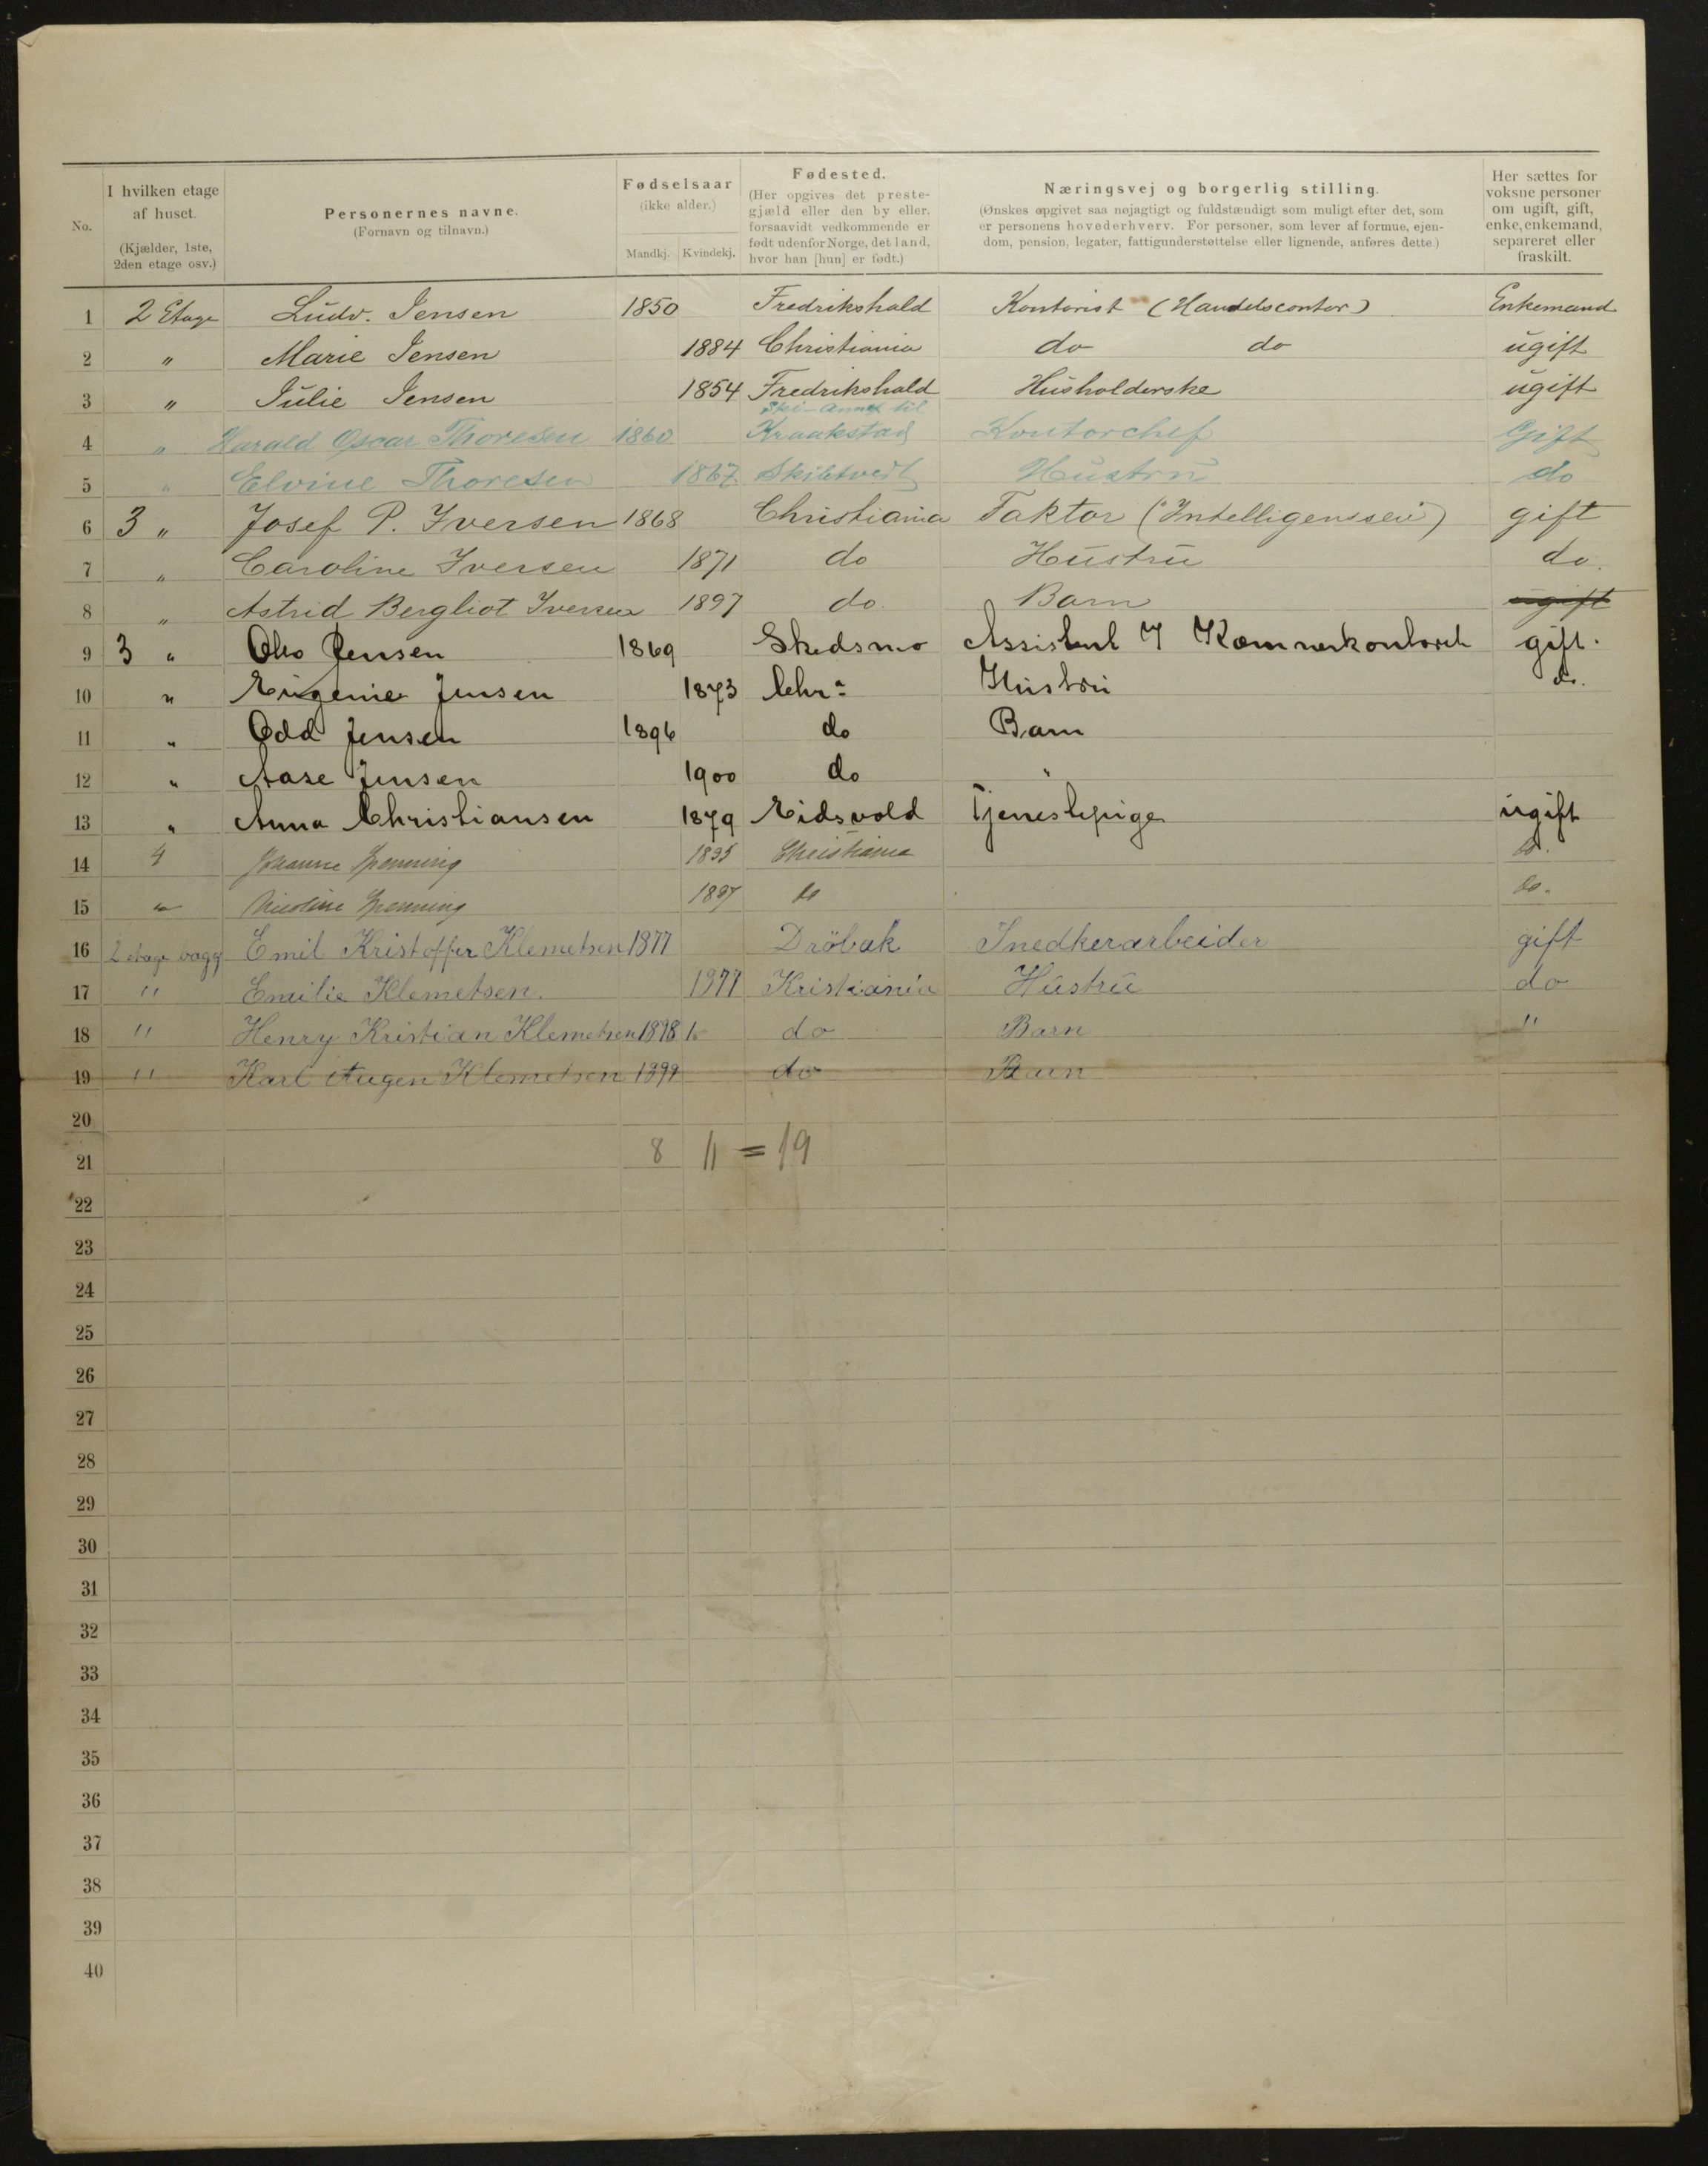 No.
I hvilken etage af huset. (Kjælder, 1ste, 2den etage osv.)
Personernes navne. (Fornavn og tilnavn.)
Fødselsaar (ikke alder.) Mandkj. Kvindekj.
Fødested. (Her opgives det prestegjæld eller den by eller, forsaavidt vedkommende er født udenfor Norge, det land, hvor han [hun] er født.)
Næringsvej og borgerlig stilling. (Ønskes opgivet saa nøjagtigt og fuldstændigt som muligt efter det, som er personens hovederhverv. For personer, som lever af formue, ejendom, pension, legater, fattigunderstøttelse eller lignende, anføres dette.)
Her sættes for voksne personer om ugift, gift, enke, enkemand, separeret eller fraskilt.
1 2 Etage Ludv. Jensen 1850 Fredrikshald Kontorist (Handelscontor) Enkemand
2 " Marie Jensen 1884 Christiania do do ugift
3 " Julie Jensen 1854 Fredrikshald Husholderske ugift
4 " Harald Oscar Thoresen 1860 Ski-Annex til Kraakstad Kontorchef Gift
5 " Elvine Thoresen 1867 Skibtvedt Hustru do
6 3 " Josef P. Iversen 1868 Christiania Faktor (Intelligenssen) gift
7 " Caroline Iversen 1871 do Hustru do.
8 " Astrid Bergliot Iversen 1897 do Barn ugift
9 3 " Jensen 1869 Skedsmo Assistent I Kæmnerkontoret gift.
10 " Eugenie Jensen 1873 Chr.a Hustru do.
11 " Odd Jensen 1896 do Barn
12 " Aase Jensen 1900 do "
13 " Anna Christiansen 1879 Eidsvold Tjenestepige ugift
14 4 Johanne Christiania do.
15 " Nicoline do do.
16 2 etage Emil Kristoffer Klemetsen 1877 Dröbak Snedkerarbeider gift
17 " Emilie Klemetsen. 1877 Kristiania Hustru do
18 " Henry Kristian Klemetsen 1898 do Barn "
19 " Karl Augen Klemetsen 1899 do Barn
20
21 8 11 = 19
22
23
24
25
26
27
28
29
30
31
32
33
34
35
36
37
38
39
40